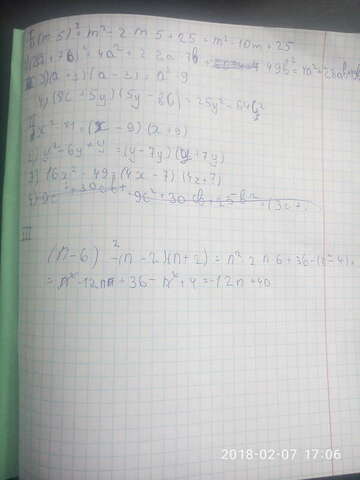 (m-5)² = m² - 2 m 5 + 25 = m² - 10m + 25
(2a + 7b)² = 4a² + 2 2a 7b + 49b² = 4a² + 28ab +
3) (a + 3) (a - 3) = a² - 9
4) (8c + 5y) (5y - 8c) = 25y² - 64c²
II
x² - 81 = (x - 9) (x + 9)
2) y² - 6y + 4 = (y - 7y) (y + 7y)
3) 16x² - 49 = (4x - 7) (4x + 7)
4) 9c² + 30cb + 9c² + 30 cb + 25b² = (3c +
III
(n - 6)² - (n - 2)(n + 2) = n² 2 n 6 + 36 - (n² - 4) =
= n² - 12n + 36 - n² + 4 = -12n + 40
2018-02-07 17:06